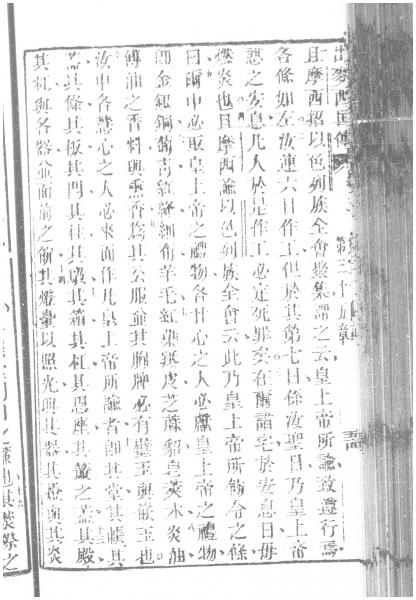 出麥西國傳
第三十五章
且摩西招以色列族全會聚集謂之云皇上帝所諭致遵行焉
各條如左汝連六日作工但於其第七日係汝聖日乃皇上帝
憩之安息凡人於是作工必定死罪矣在爾諸宅於安息日毋
燃炎也且摩西諭以色列族全會云此乃皇上帝所飭令之條
曰爾中必取皇上帝之禮物各甘心之人必獻皇上帝之禮物
即金銀銅青紅絳細布羊毛紅染羝皮芝蔴貂皂莢木炎油
傅油之香料與熏香為其公服並其胸牌必有璧玉與嵌玉也
汝中各慧心之人必來而作凡皇上帝所諭者即其堂其帳其
蓋其條其板其閂其柱其𣪚其箱其杠其恩座其簾之蓋其殿
其杠與各器並面前之餅其燈臺以照光與其器其燈與其炎